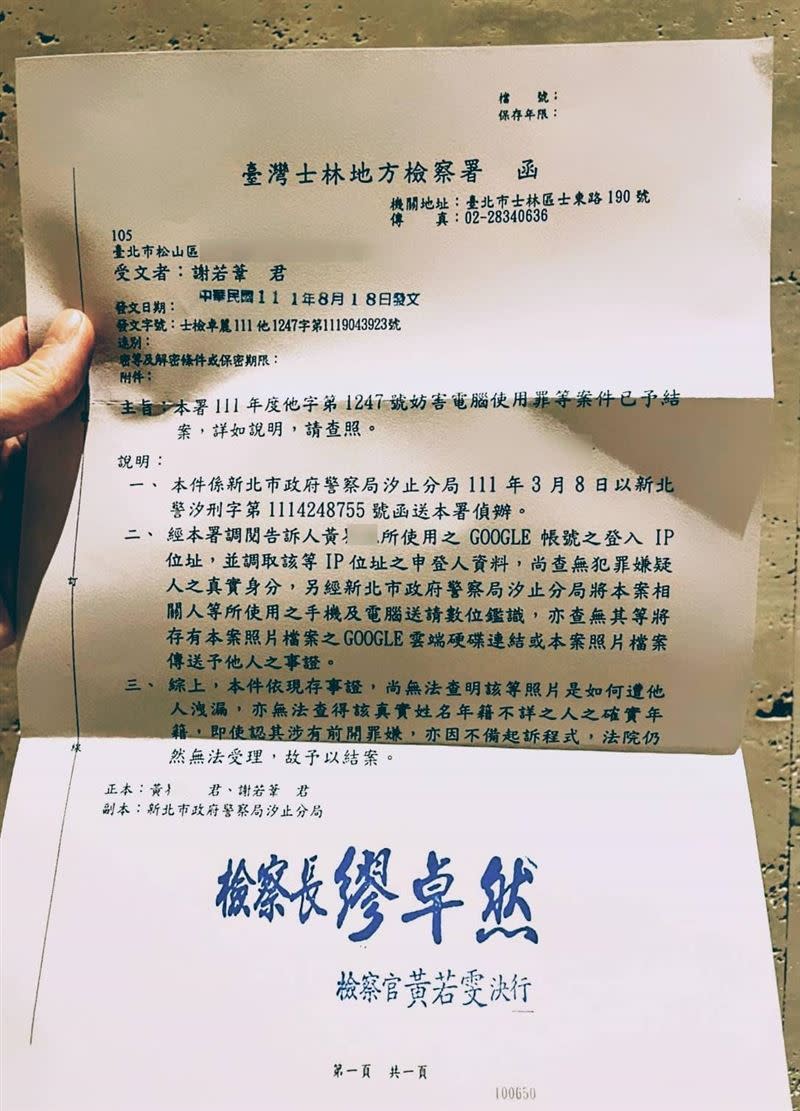 檔　　號：
保存年限：
臺灣士林地方檢察署　函
機關地址：臺北市士林區士東路190號
傳　　真：02-28340636
105
臺北市松山區
受文者：謝若葦　君
發文日期：中華民國111年8月18日發文
發文字號：士檢卓麗111他1247字第1119043923號
速別：
密等及解密條件或保密期限：
附件：
主旨：本署111年度他字第1247號妨害電腦使用罪等案件已予結
案，詳如說明，請查照。
說明：
一、本件係新北市政府警察局汐止分局111年3月8日以新北
警汐刑字第1114248755號函送本署偵辦。
二、經本署調閱告訴人黃　所使用之GOOGLE帳號之登入IP
位址，並調取該等IP位址之申登人資料，尚查無犯罪嫌疑
人之真實身分，另經新北市政府警察局汐止分局將本案相
關人等所使用之手機及電腦送請數位鑑識，亦查無其等將
存有本案照片檔案之GOOGLE雲端硬碟連結或本案照片檔案
傳送予他人之事證。
三、綜上，本件依現存事證，尚無法查明該等照片是如何遭他
人洩漏，亦無法查得該真實姓名年籍不詳之人之確實年
籍，即使認其涉有前開罪嫌，亦因不備起訴程式，法院仍
然無法受理，故予以結案。
訂
線
正本：黃　君、謝若葦　君
副本：新北市政府警察局汐止分局
檢察長繆卓然
檢察官黃若雯決行
第一頁　共一頁
100650